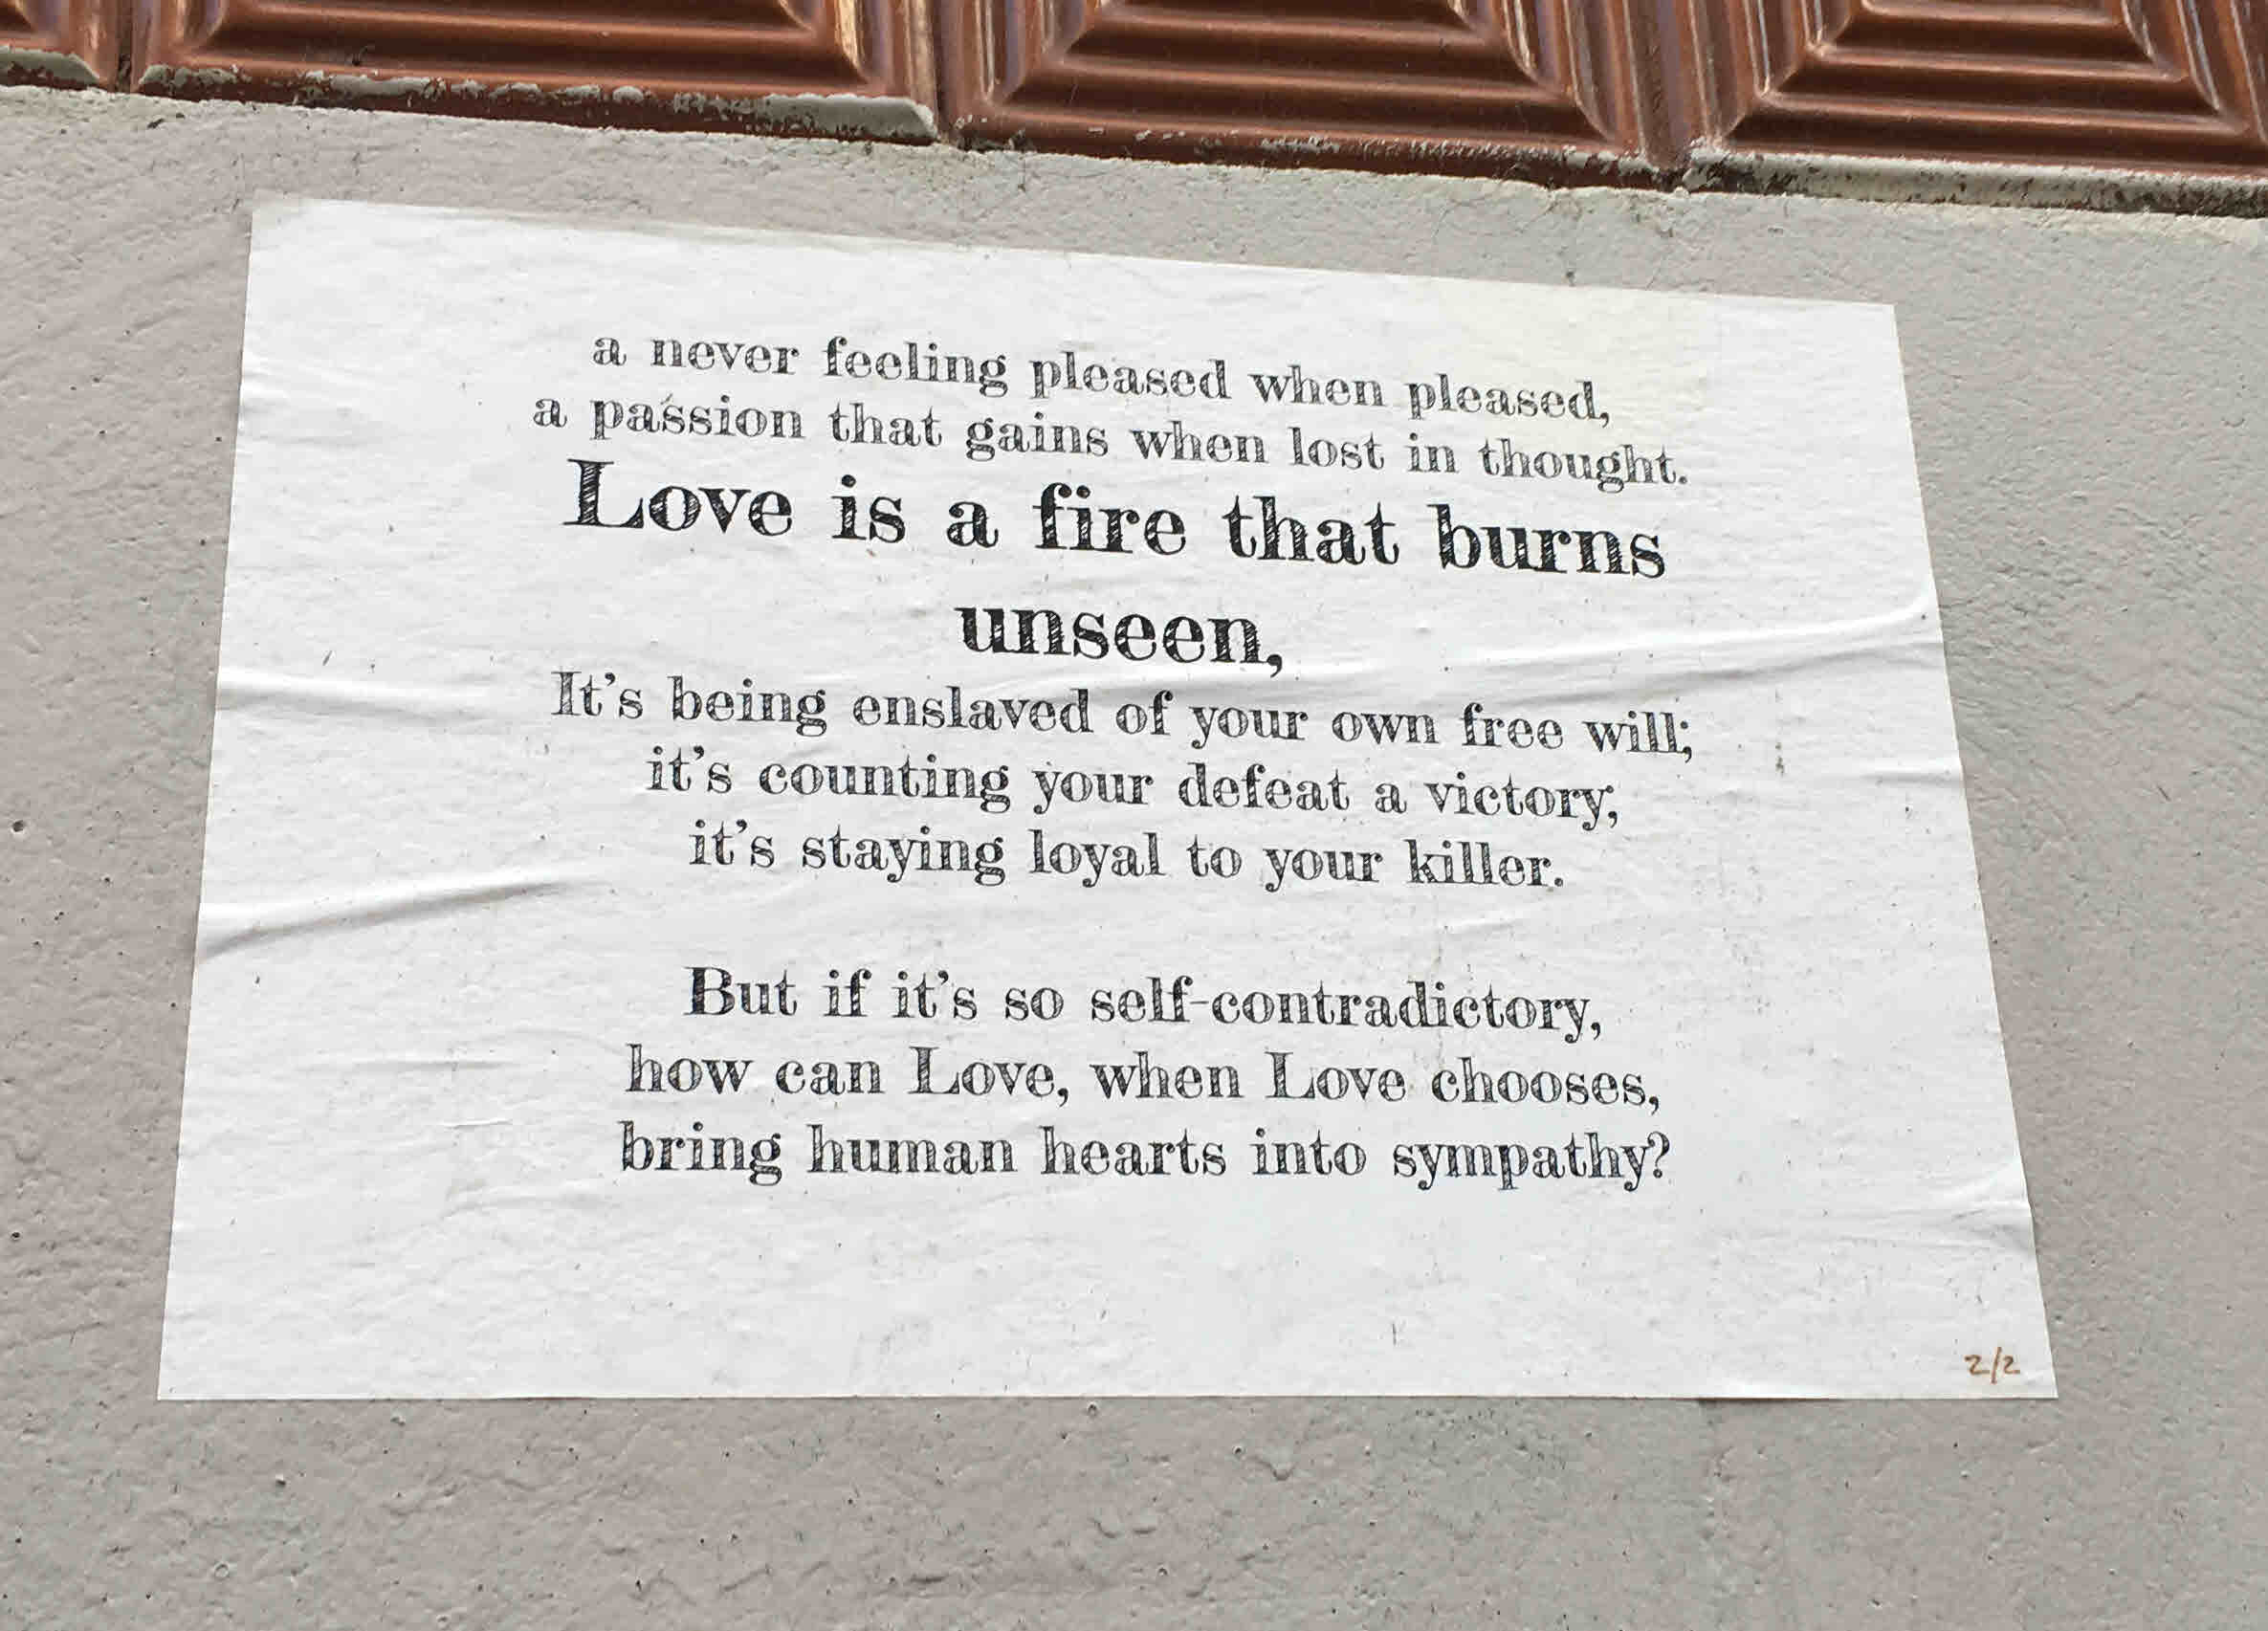 a never feeling pleased when pleased,
a passion that gains when lost in thought.
Love is a fire that burns
unseen,
It's being enslaved of your own free will;
it's counting your defeat a victory;
it's staying loyal to your killer.
But if it's so self-contradictory,
how can Love, when Love chooses,
bring human hearts into sympathy?
2/2